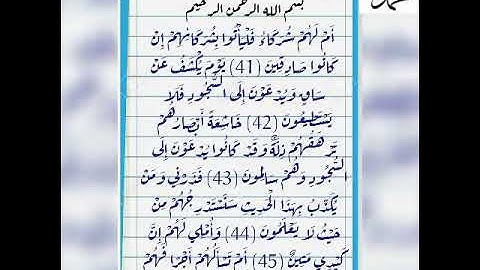 بسم الله الرحمن الرحيم
أَمْ لَهُمْ شُرَكَاءُ فَلْيَأْتُوا بِشُرَكَائِهِمْ إِن
كَانُوا صَادِقِينَ (41) يَوْمَ يُكْشَفُ عَن
سَاقٍ وَيُدْعَوْنَ إِلَى السُّجُودِ فَلَا
يَسْتَطِيعُونَ (42) خَاشِعَةً أَبْصَارُهُمْ
تَرْهَقُهُمْ ذِلَّةٌ وَقَدْ كَانُوا يُدْعَوْنَ إِلَى
السُّجُودِ وَهُمْ سَالِمُونَ (43) فَذَرْنِي وَمَن
يُكَذِّبُ بِهَذَا الْحَدِيثِ سَنَسْتَدْرِجُهُمْ مِنْ
حَيْثُ لَا يَعْلَمُونَ (44) وَأُمْلِي لَهُمْ إِنَّ
كَيْدِي مَتِينٌ (45) أَمْ تَسْأَلُهُمْ أَجْرًا فَهُمْ